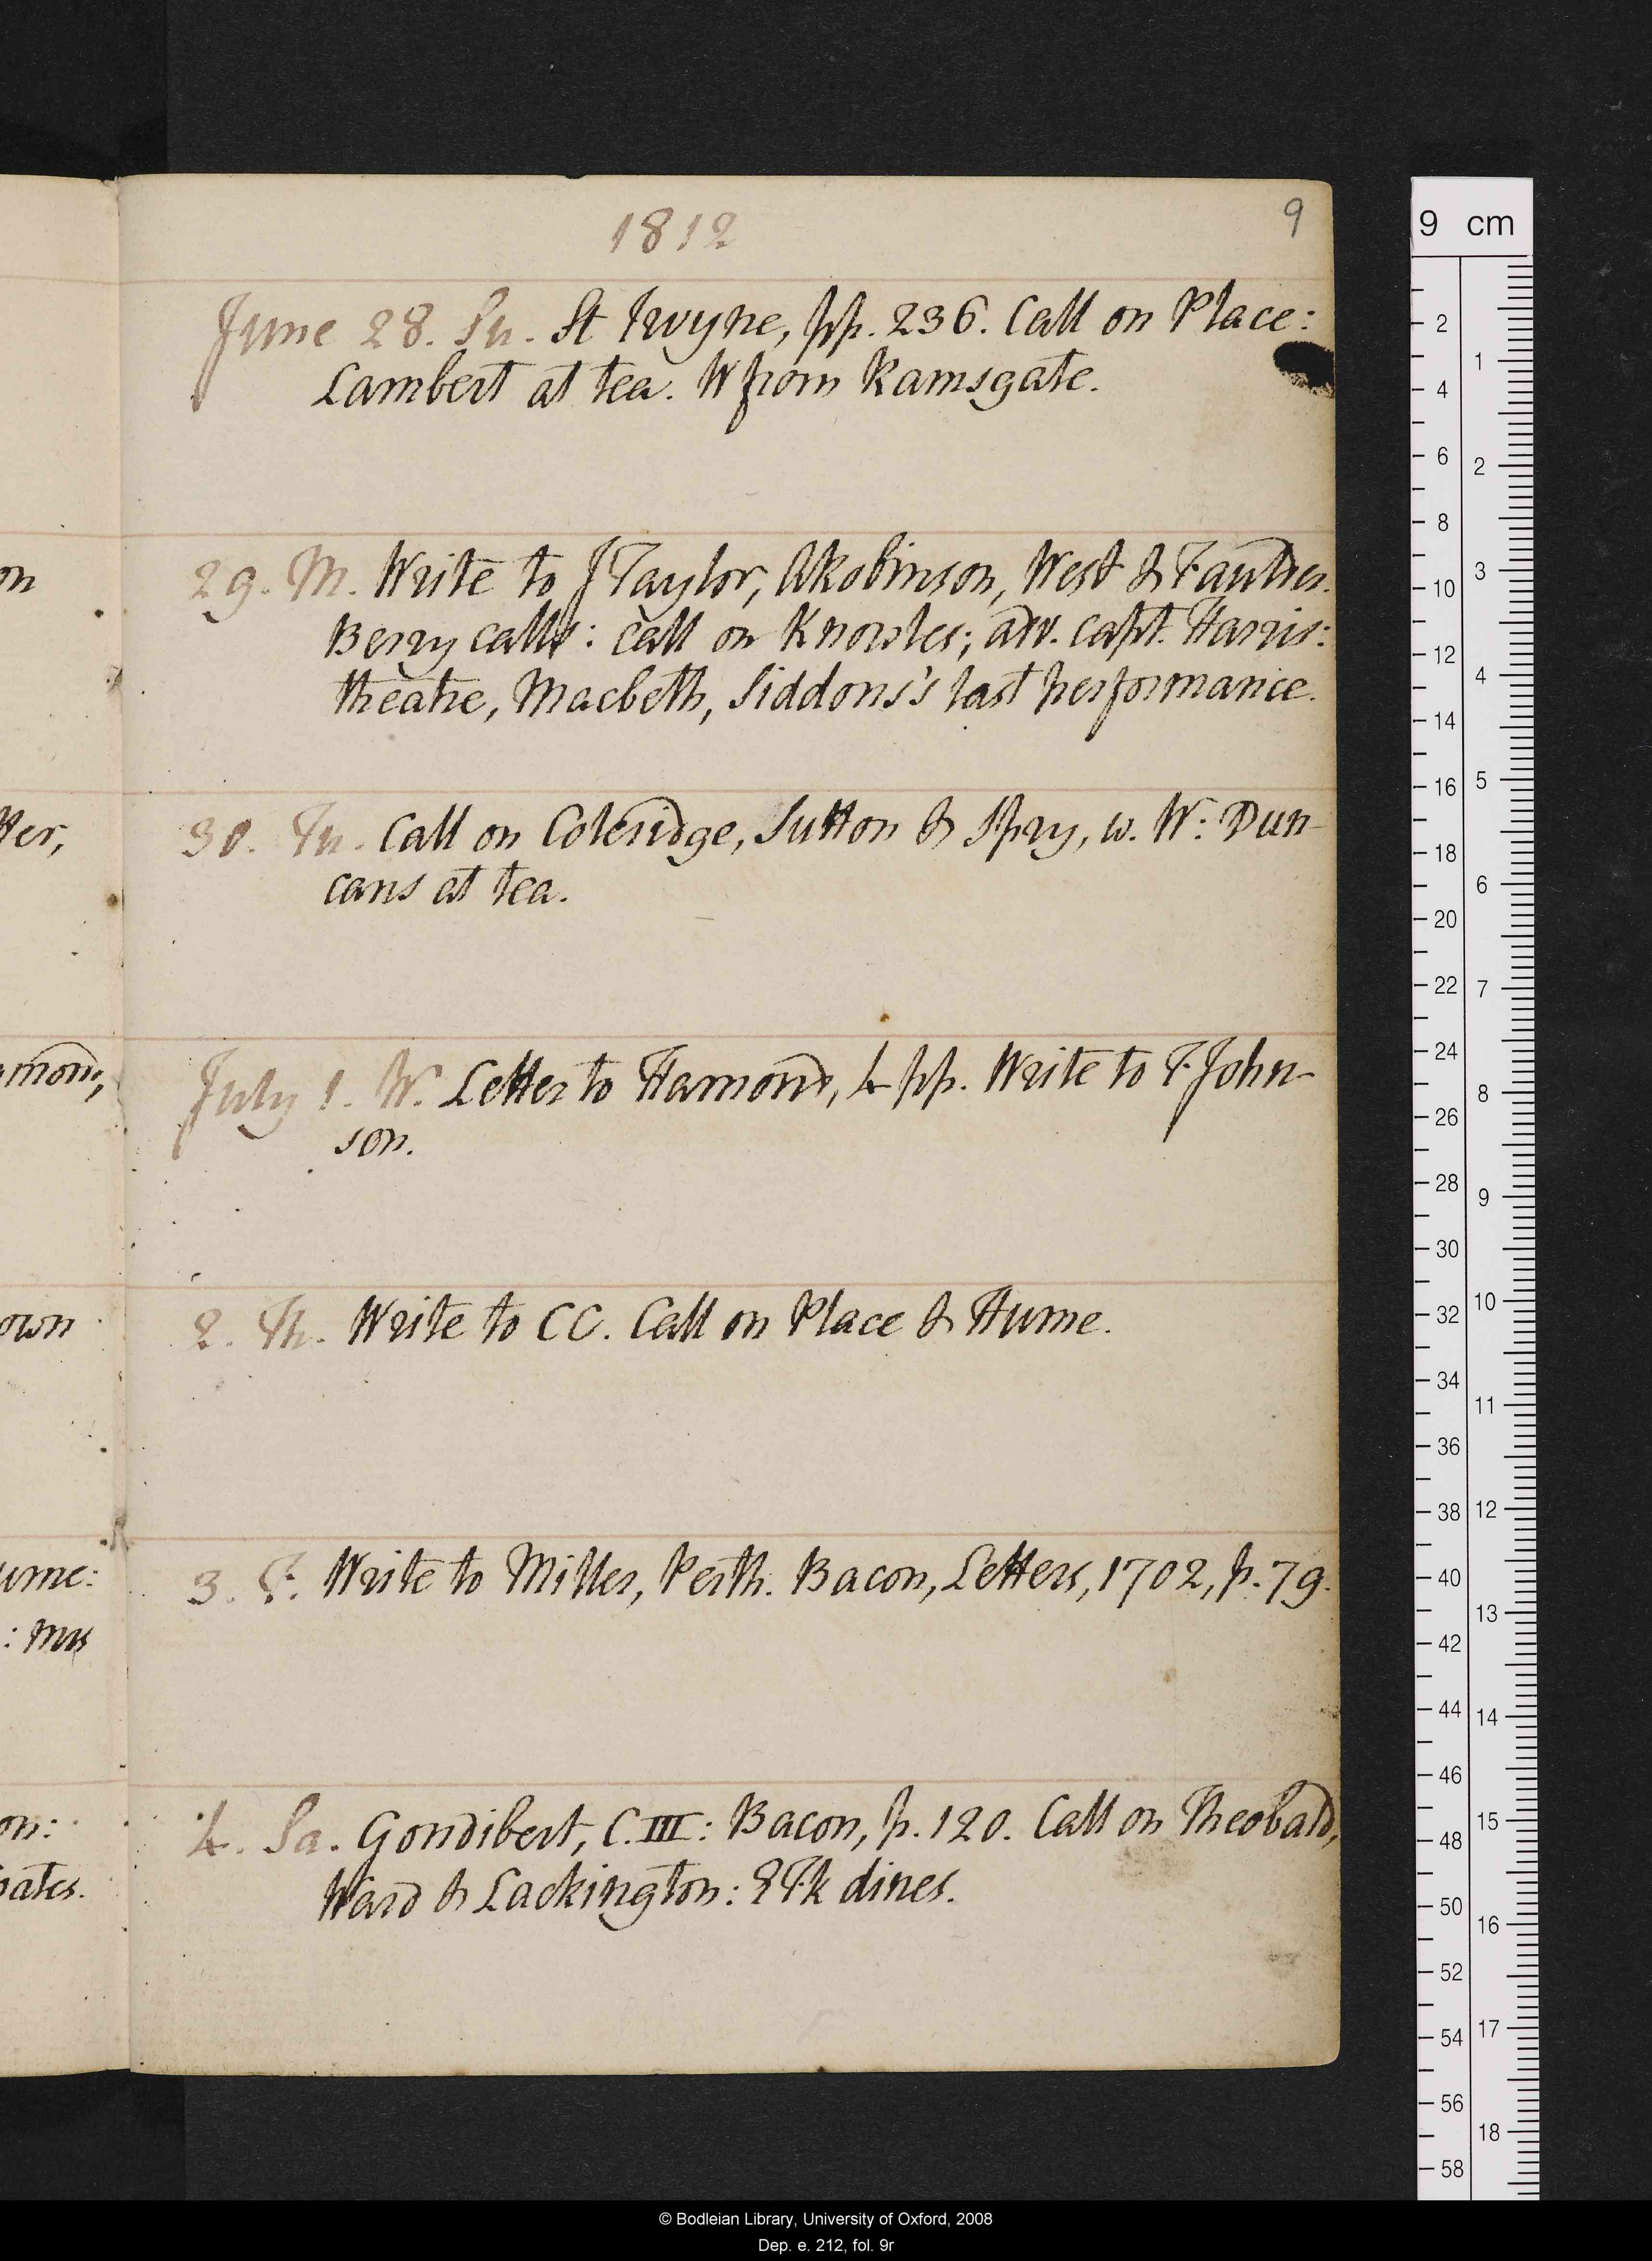 1812
9
June 28. Su. St Irvyne, pp. 236. Call on Place:
Lambert at tea. W from Ramsgate.
29. M. Write to J Taylor, A Robinson, West & Faulder.
Berry calls: call on Knowles; adv. Capt. Harris:
theatre, Macbeth, Siddons's last performance.
30. Tu. Call on Coleridge, Sutton & Spry, w. W: Dun-
cans at tea.
July 1. W. Letter to Hamond, 4 pp. Write to T. John-
son.
2. Th. Write to CC. Call on Place & Hume.
3. F. Write to Miller, Perth. Bacon, Letters, 1702, p. 79.
4. Sa. Gondibert, C. III: Bacon, p. 120. Call on Theobald,
Ward & Lackington: ETk dines.
on
tter,
amond,
own
ume:
: Mrs
on:
pates.
9 cm
2
4
6
8
10
12
14
16
18
20
22
24
26
28
30
32
34
36
38
40
42
44
46
48
50
52
54
56
58
1
2
3
4
5
6
7
8
9
10
11
12
13
14
15
16
17
18
© Bodleian Library, University of Oxford, 2008
Dep. e. 212, fol. 9r